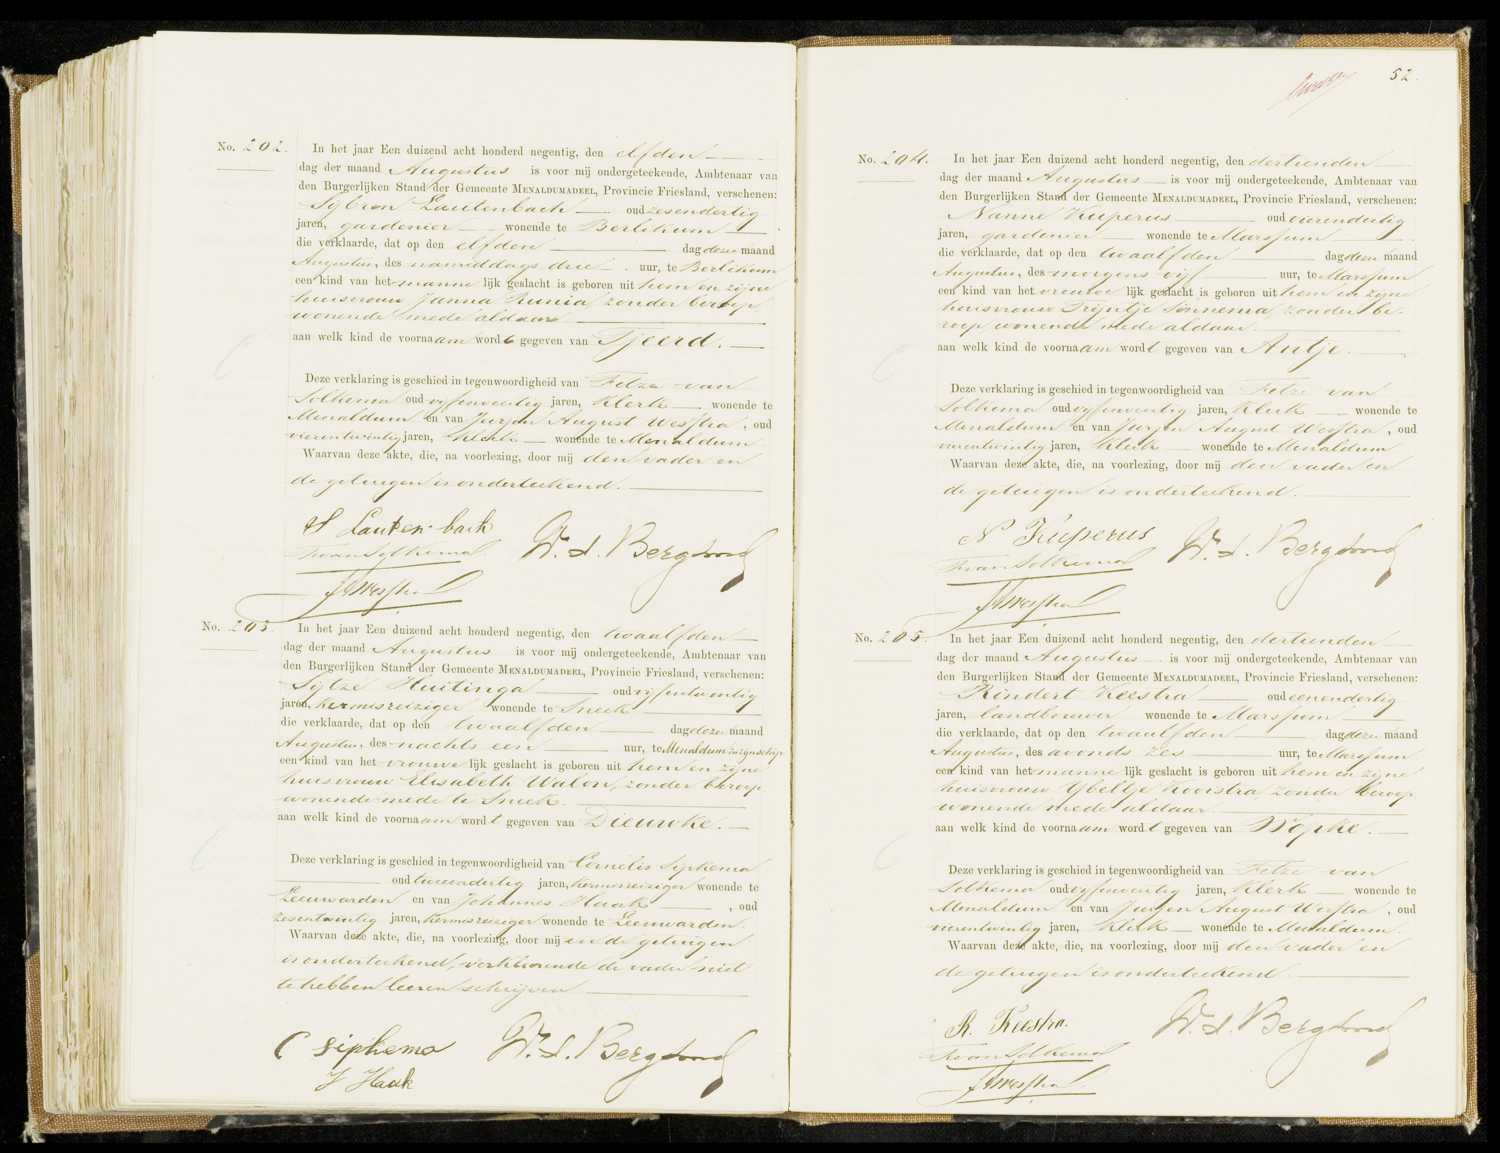 No. 202.
In het jaar Een duizend acht honderd negentig, den elfden
dag der maand Augustus is voor mij ondergeteekende, Ambtenaar van
den Burgerlijken Stand der Gemeente MENALDUMADEEL, Provincie Friesland, verschenen:
Sybren Lautenbach oud zesendertig
jaren, gardenier wonende te Berlikum
die verklaarde, dat op den elfden dag dezer maand
Augustus, des namiddags drie uur, te Berlikum
een kind van het manne lijk geslacht is geboren uit hem en zijne
huisvrouw Janna Runia zonder beroep
wonende mede aldaar
aan welk kind de voornaam wordt gegeven van Tjeerd.
Deze verklaring is geschied in tegenwoordigheid van Fetze van
Solkema oud vijfenveertig jaren, klerk wonende te
Menaldum en van Jurjen August Westra, oud
vierentwintig jaren, klerk wonende te Menaldum
Waarvan deze akte, die, na voorlezing, door mij den vader en
de getuigen is onderteekend.
S Lautenbach
F van Solkema
W. L. Bergsma
J A Westra
No. 203.
In het jaar Een duizend acht honderd negentig, den twaalfden
dag der maand Augustus is voor mij ondergeteekende, Ambtenaar van
den Burgerlijken Stand der Gemeente MENALDUMADEEL, Provincie Friesland, verschenen:
Sytze Huitinga oud vijfentwintig
jaren, kermisreiziger wonende te Sneek
die verklaarde, dat op den twaalfden dag dezer maand
Augustus, des nachts een uur, te Menaldum in zijn schip
een kind van het vrouwe lijk geslacht is geboren uit hem en zijne
huisvrouw Elisabeth Walon, zonder beroep
wonende mede te Sneek.
aan welk kind de voornaam wordt gegeven van Dieuwke.
Deze verklaring is geschied in tegenwoordigheid van Cornelis Sipkema
oud tweeendertig jaren, kermisreiziger wonende te
Leeuwarden en van Johannes Haak, oud
zesentwintig jaren, kermisreiziger wonende te Leeuwarden.
Waarvan deze akte, die, na voorlezing, door mij en de getuigen
is onderteekend, verklarende de vader niet
te hebben leeren schrijven
C Sipkema
W. L. Bergsma
J Haak
52.
No. 204.
In het jaar Een duizend acht honderd negentig, den dertienden
dag der maand Augustus is voor mij ondergeteekende, Ambtenaar van
den Burgerlijken Stand der Gemeente MENALDUMADEEL, Provincie Friesland, verschenen:
Nanne Kuperus oud vierendertig
jaren, gardenier wonende te Marssum
die verklaarde, dat op den twaalfden dag dezer maand
Augustus, des morgens vijf uur, te Marssum
een kind van het vrouwe lijk geslacht is geboren uit hem en zijne
huisvrouw Trijntje Sinnema zonder be-
roep wonende mede aldaar.
aan welk kind de voornaam wordt gegeven van Antje.
Deze verklaring is geschied in tegenwoordigheid van Fetze van
Solkema oud vijfenveertig jaren, klerk wonende te
Menaldum en van Jurjen August Westra, oud
vierentwintig jaren, klerk wonende te Menaldum
Waarvan deze akte, die, na voorlezing, door mij den vader en
de getuigen is onderteekend.
N Kuperus
F van Solkema
W. L. Bergsma
J A Westra
No. 205.
In het jaar Een duizend acht honderd negentig, den dertienden
dag der maand Augustus is voor mij ondergeteekende, Ambtenaar van
den Burgerlijken Stand der Gemeente MENALDUMADEEL, Provincie Friesland, verschenen:
Rindert Keestra oud eenendertig
jaren, landbouwer wonende te Marssum
die verklaarde, dat op den twaalfden dag dezer maand
Augustus, des avonds zes uur, te Marssum
een kind van het manne lijk geslacht is geboren uit hem en zijne
huisvrouw Ybeltje Kooistra, zonder beroep
wonende mede aldaar.
aan welk kind de voornaam wordt gegeven van Wopke.
Deze verklaring is geschied in tegenwoordigheid van Fetze van
Solkema oud vijfenveertig jaren, klerk wonende te
Menaldum en van Jurjen August Westra, oud
vierentwintig jaren, klerk wonende te Menaldum.
Waarvan deze akte, die, na voorlezing, door mij den vader en
de getuigen is onderteekend.
R. Keestra.
F van Solkema
W. L. Bergsma
J A Westra